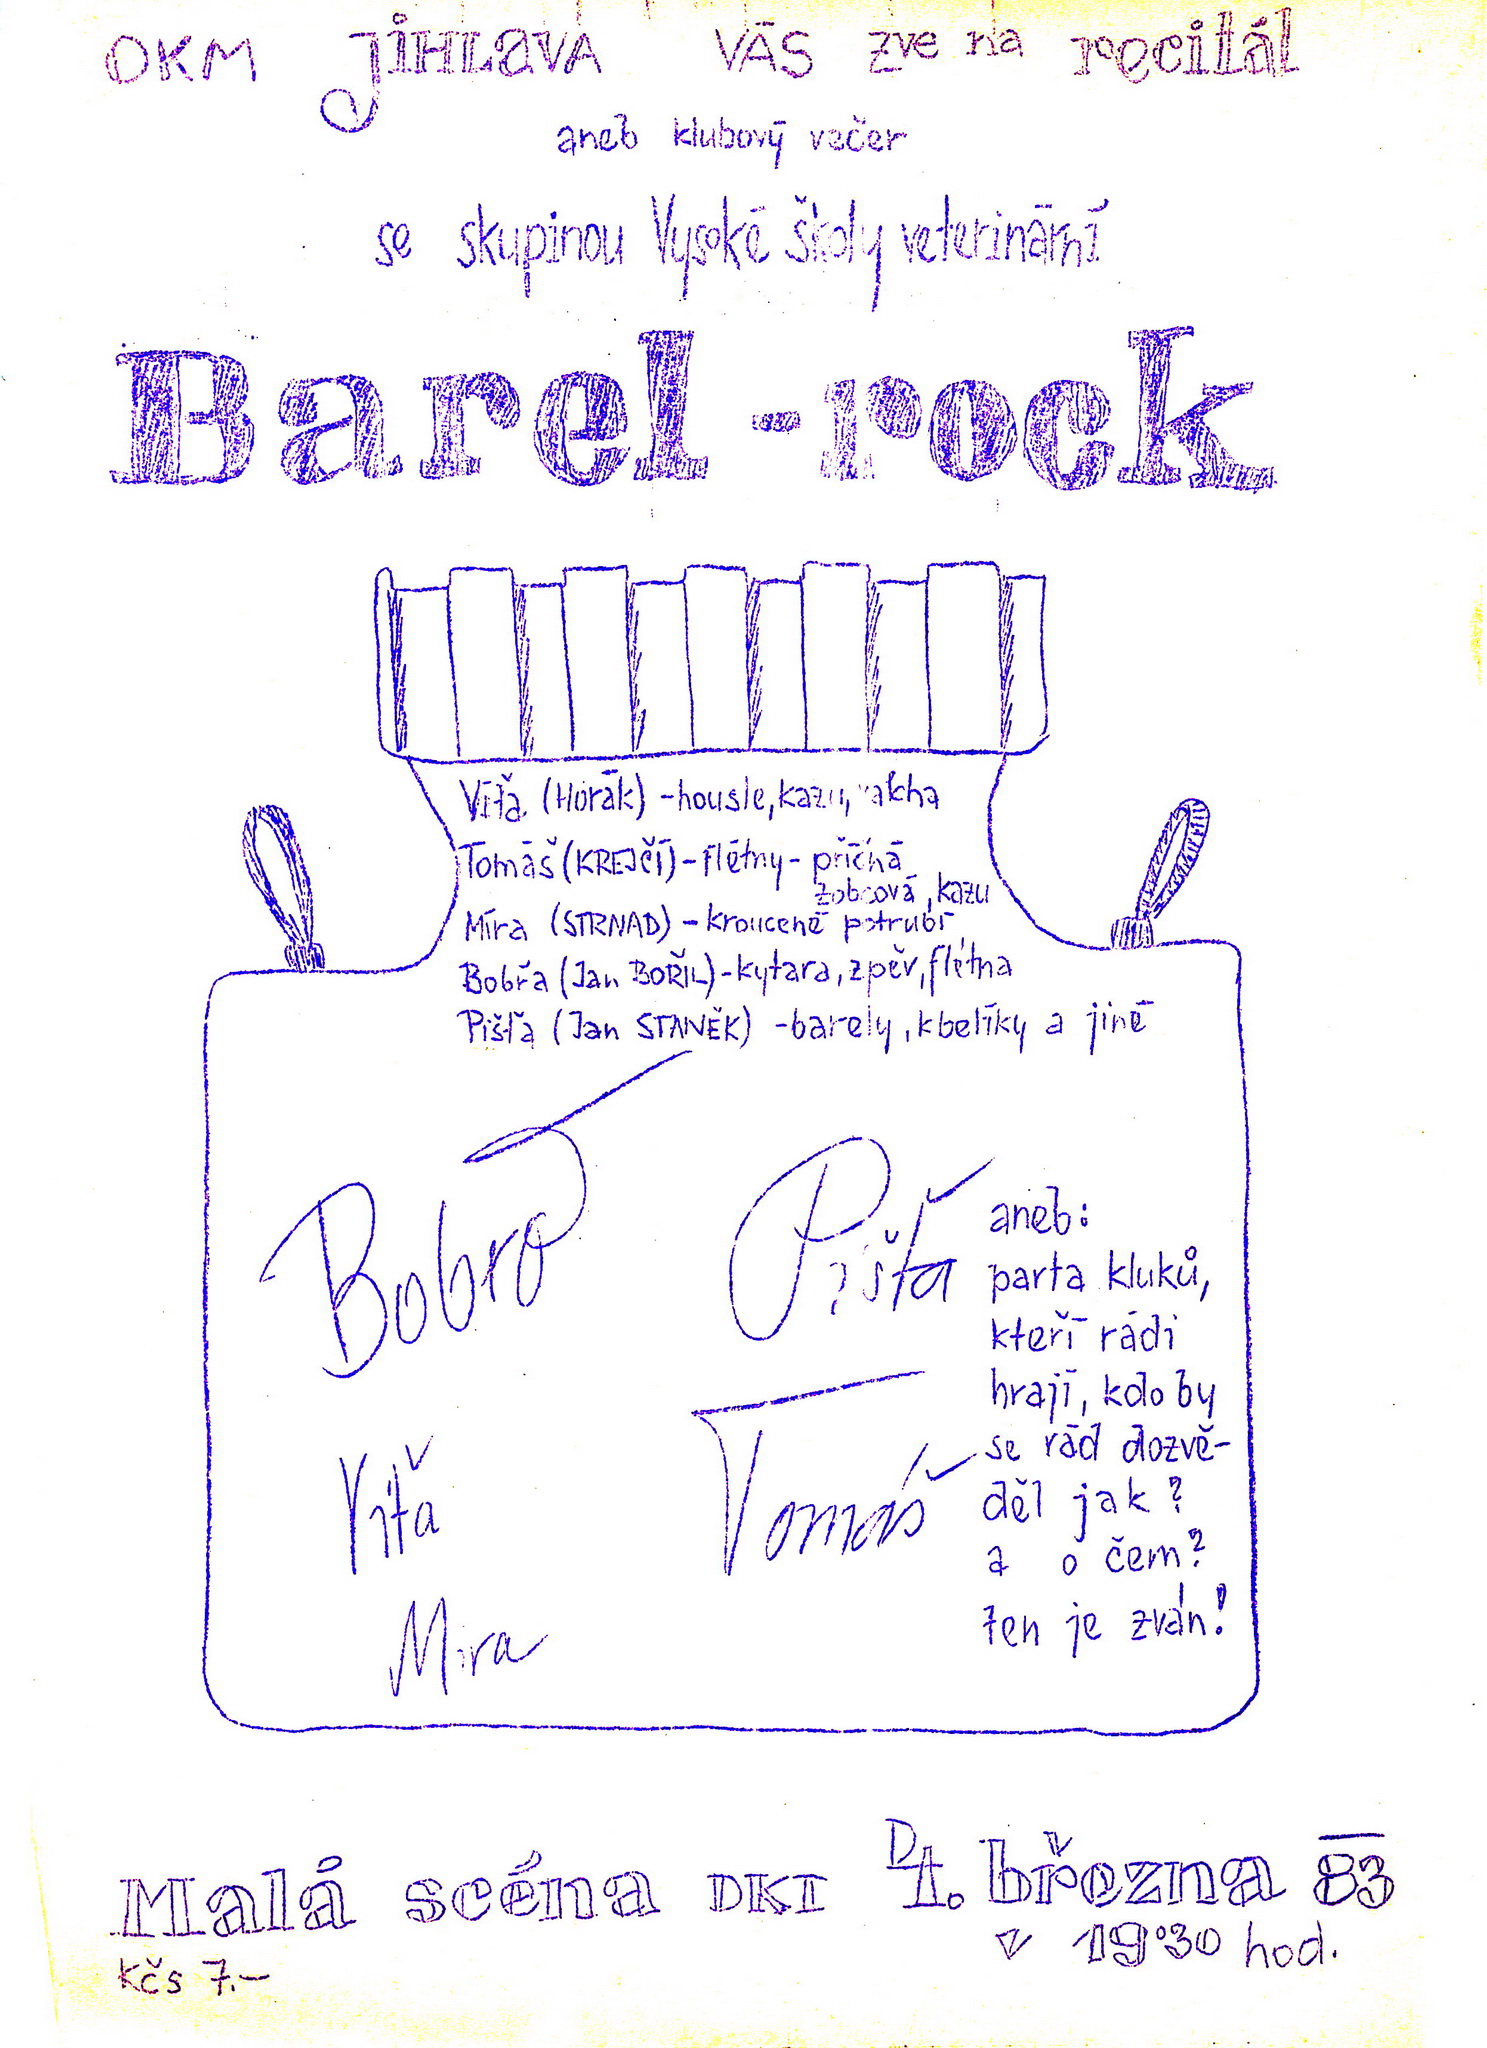 OKM JIHLAVA VÁS zve na recitál
aneb klubový večer
se skupinou Vysoké školy veterinární
Barel-rock
Víťa (Horák) - housle, kazu,
Tomáš (KREJČÍ) - flétny - příčná
zobcová, kazu
Míra (STRNAD) - kroucené potrubí
Bobřa (Jan BOŘIL) - kytara, zpěv, flétna
Pišťa (Jan STANĚK) - barely, kbelíky a jiné
Bobřo
Pišťa
Víťa
Tomáš
Míra
aneb:
parta kluků,
kteří rádi
hrají, kdo by
se rád dozvě-
děl jak?
a o čem?
ten je zván!
Malá scéna DKI
D 1. března 83
v 19:30 hod.
Kčs 7.-